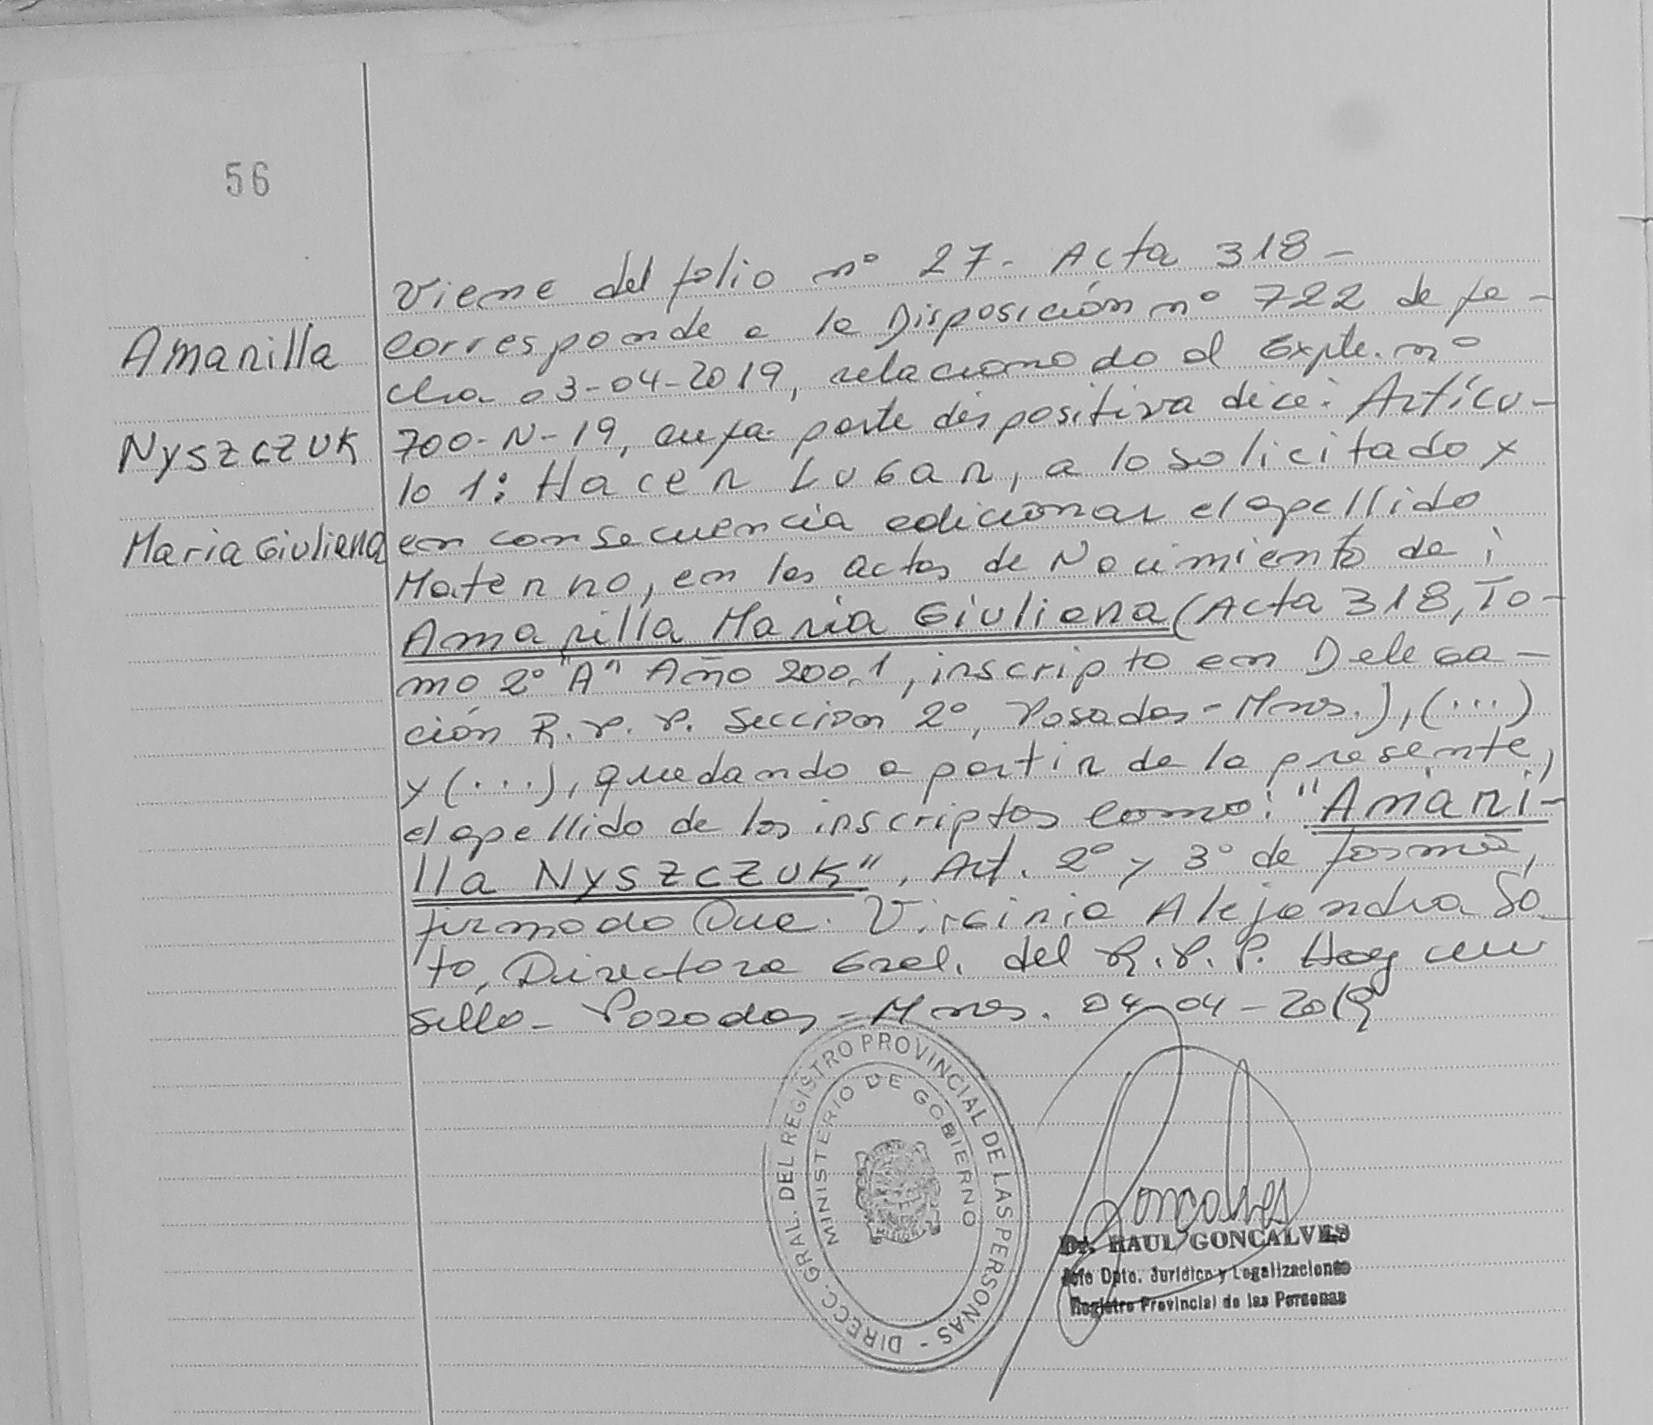 56
Viene del folio nº 27- Acta 318-
Amarilla
Nyszczuk
Maria Giuliena
corresponde a la Disposición nº 722 de fe-
cha 03-04-2019, relacionado al Expte. nº
700-N-19, cuya parte dispositiva dice: Artícu-
lo 1: Hacer Lugar, a lo solicitado y
en consecuencia adicionar el apellido
Materno, en las actas de Nacimiento de:
Amarilla Maria Giuliena (Acta 318, To-
mo 2º "A" Año 2001, inscripto en Delega-
ción R.P.P. Seccion 2º, Posadas-Mnes.), (...)
y (...), quedando a partir de la presente,
el apellido de los inscriptos como: "Amari-
lla Nyszczuk", Art. 2º y 3º de forma,
firmado Virginia Alejandra So-
to, Directora Gral. del R.P.P. Hay un
sello- Posadas-Mnes. 04-04-2019
DIRECC. GRAL. DEL REGISTRO PROVINCIAL DE LAS PERSONAS -
MINISTERIO DE GOBIERNO
Goncalves
Dr. RAUL GONCALVES
Jefe Dpto. Jurídico y Legalizaciones
Registro Provincial de las Personas